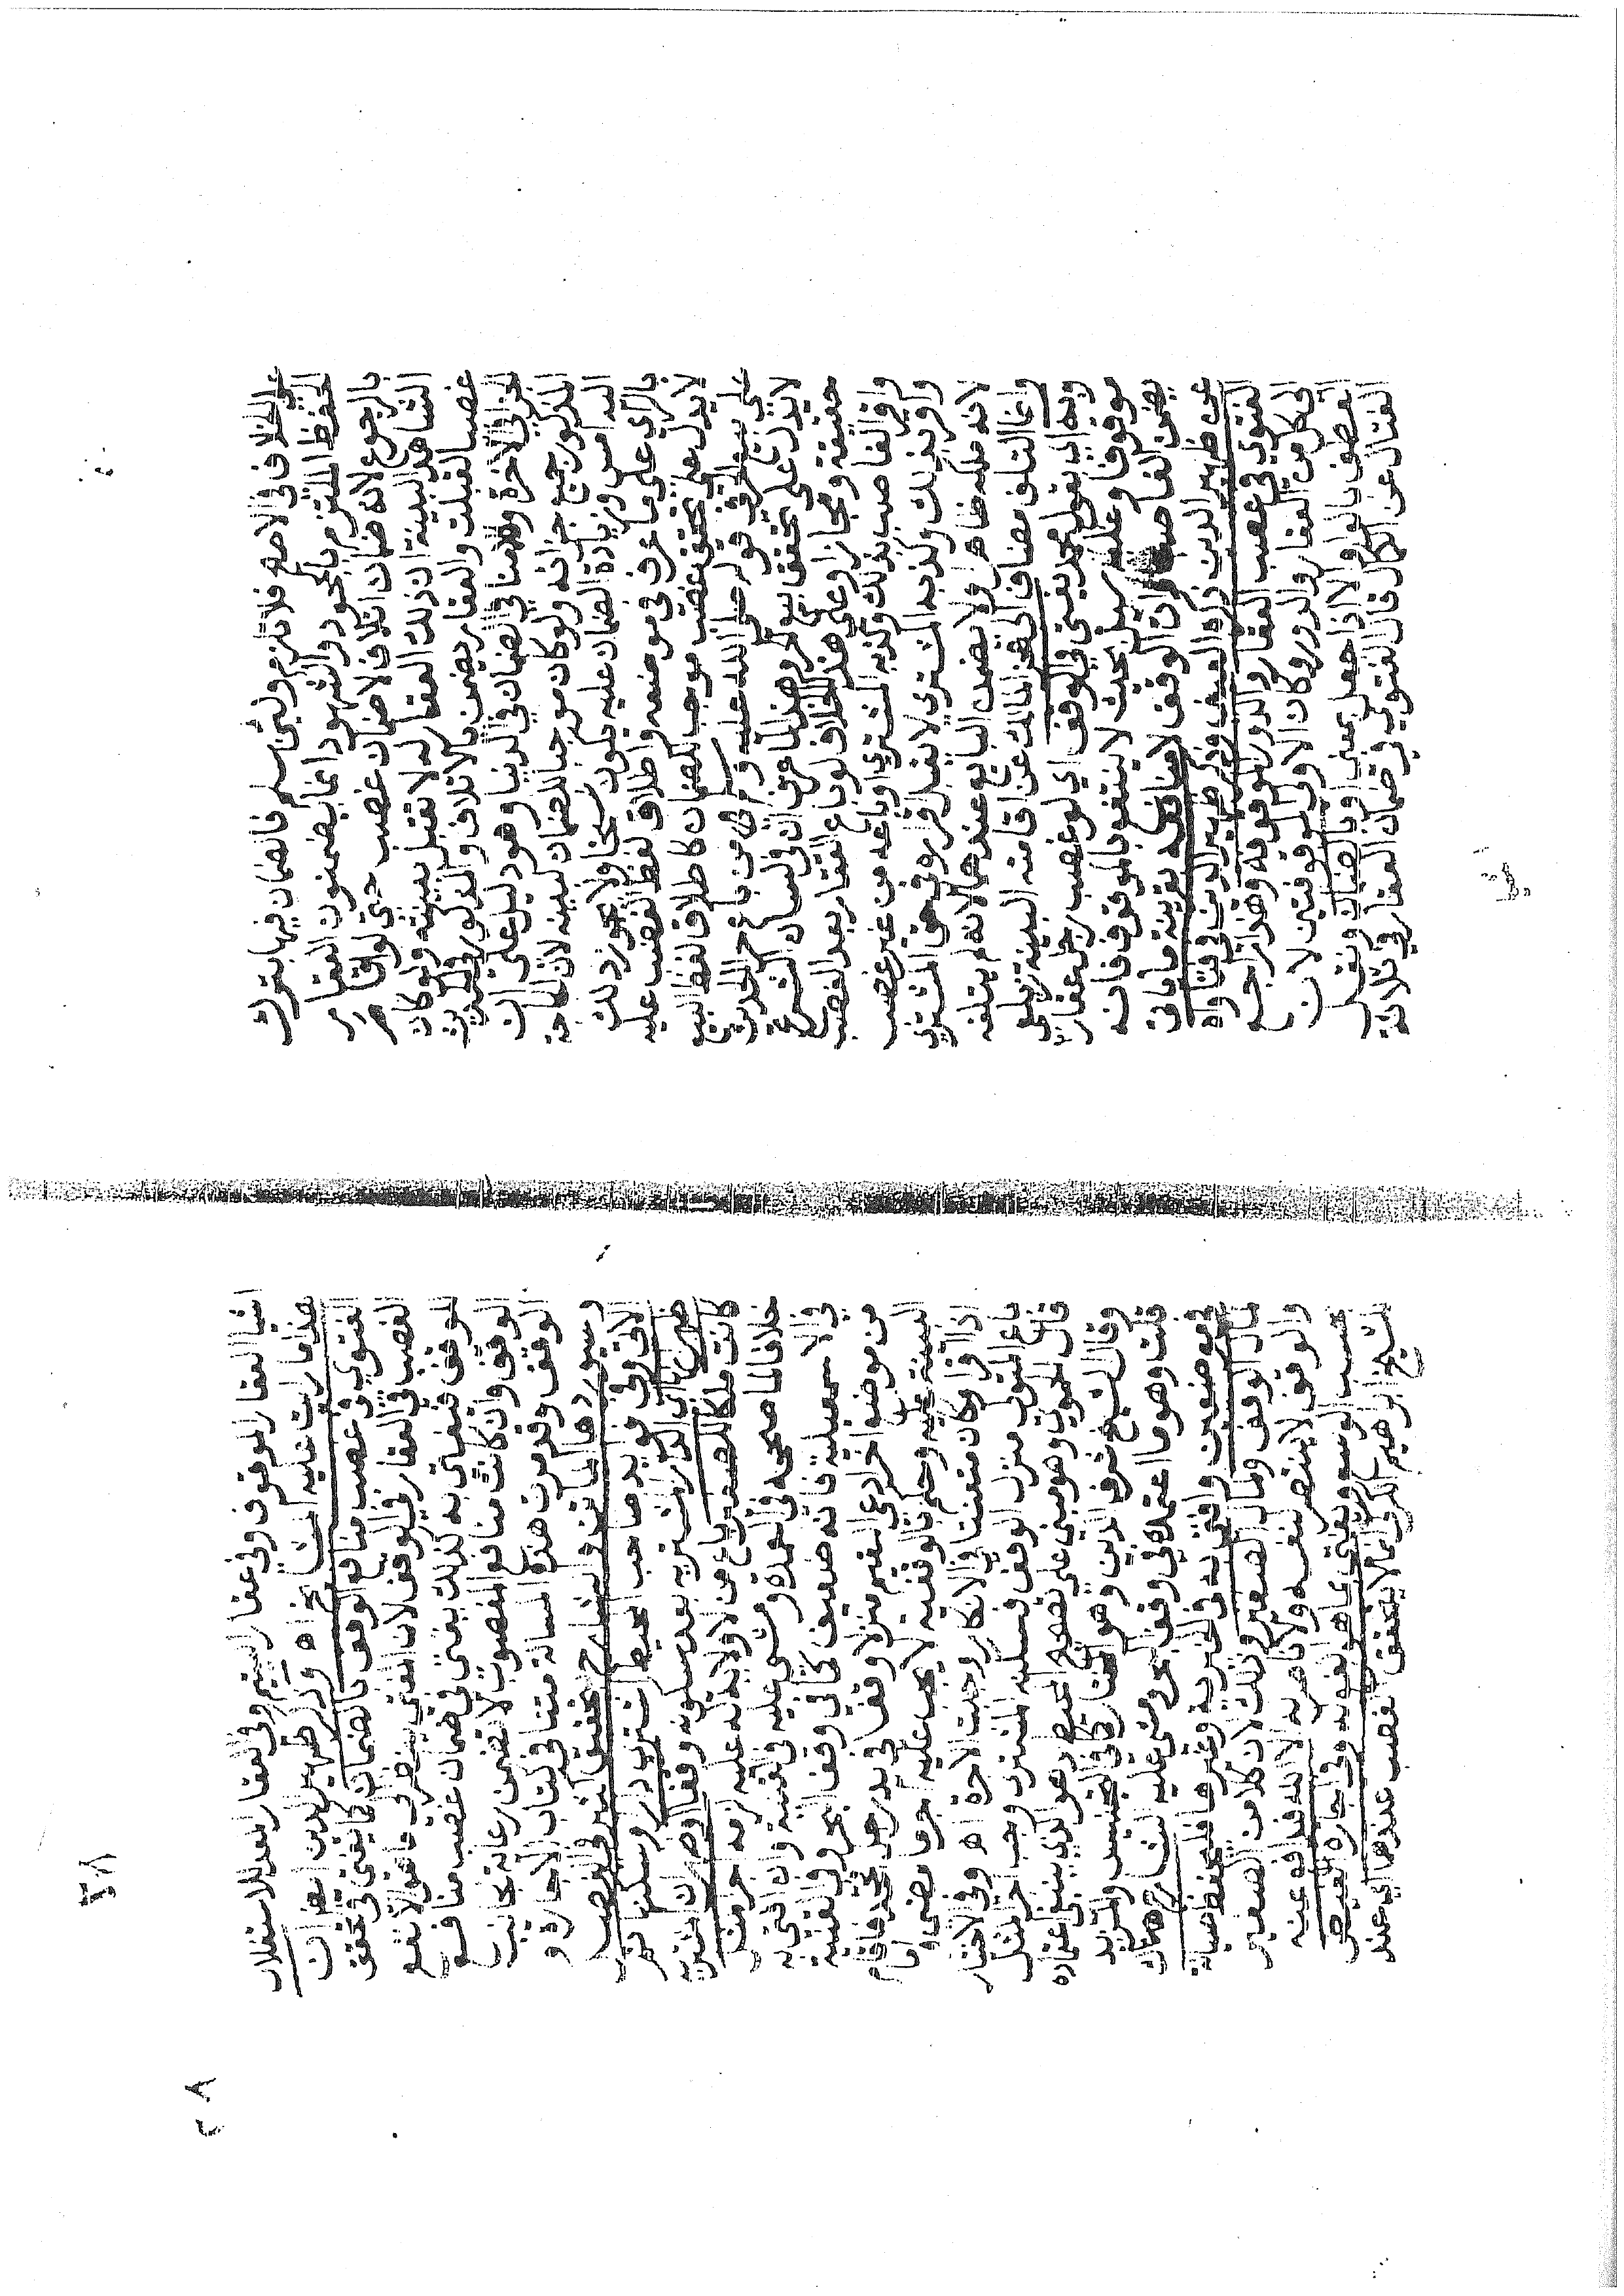 على الخلاف في الاصح فلا تلزم ولئن سلم فالضمان فيها بترك
الحفظ الملتزم بالجحود والشهود انما يضمنون العقار
بالرجوع لانه ضمان اتلاف لا ضمان غصب حتى لو اقام
الشاهد البينة ان ذلك العقار له لا تقبل بينته ولو كان
غصبا لقبلت والعقار يضمن بالاتلاف والمذكور في الحديث
الجزا في الاخرة وكلامنا في الضمان في الدنيا وهو دليل على ان
المذكور جميع جزائه ولو كان موجبا للضمان لبينه لان الحاجة
اليه امس وزيادة الضمان عليه يكون نسخا ولا يجوز ذلك
بالراي على ما عرف في موضعه واطلاق لفظ الغصب عليه
لا يدل على تحقق غصب موجب للضمان كاطلاق لفظ البيع
على بيع الحر في قوله صلى الله عليه وسلم من باع حرا الحديث
لا يدل على تحقق بيع الحر وهذا لما عرف ان في لسان الشرع
حقيقة ومجازا وعلى هذا الخلاف لو باع العقار بعد الغصب
واقر الغاصب بذلك وكذبه المشتري او باعه من غير غصب
واقر بذلك وكذبه المشتري لا يقبل اقراره في حق المشتري
لانه ملكه ظاهرا ولا يضمن البايع عندهما لانه لم يتلفه
وانما التلف مضاف الى عجز المالك عن اقامته البينة زيلعي
وبه اي بقول محمد يفتى في الوقف اي لو غصب رجل عقار
موقوفا سيل بحيث لا ينتفع بالموقوف فانه
يضمن الغاصب الوقف لا منافعه بقرينة ما ياتي
عن ظهير الدين ذكره العيني وذكر ظهير الدين في فتاواه
الفتوى في غصب العقار والدور الموقوفة وهو راجع
لكل من العقار والدور وكان الاولى موقوفتين لان
العطف بالواو الا اذا جعل بمعنى او بالضمان ونقل
القتال عن الكمال قال الفتوى في ضمان العقار في ثلاثة
٢٨
اشيا العقار الموقوف وفي عقار اليتيم وفي العقار المعد للاستغلال
هذا ما رايت عليه المشايخ اه وذكر ظهير الدين ايضا ان
الفتوى في غصب منافع الوقف بالضمان كما يفتى في تحقق
الغصب في العقار في الوقف لان المفتي ينظر الى ما هو الانفع
للوقف فيفتى به لذلك يفتى في ضمان غصب منافع
الوقف وان كانت منافع المغصوب لا تضمن رعاية لجانب
الوقف وقد مرت هذه المسالة متنا في كتاب الاجارة و
سيوردها المصنف
الاتي وفي فوايد صاحب المحيط اشترى دارا وسكنها ثم
ظهر ان الدار
كانت ملكا للصغير باع من لا ولاية له عليه لزمه اجر مثله
خلافا لما صححه في العمدة ومشى عليه في القنية وان المفتى به
فانه ضعيف كما في وقف البحر وفي القنية
من موضع اخر ادعى القيم منزلا وقفا في يد رجل فجحد فاقام
البينة عليه وحكم بالوقفية لا يجب عليه اجر ما مضى واما
اذا اقر وكان متعنتا في الانكار وجبت الاجرة اه وفي الاختيار
باع المتولي منزل الوقف فسكنه المشتري وجب اجر المثل
قال الحموي وهو مبني على تصحيح المحيط وهو الذي ينبغي اعتماده
وقال الشيخ شرف الدين وهو المختار كما في التجنيس والمزيد
قلت وهو ما اعتمده في وقف البحر ومشى عليه الشارح هناك
في موضعين وافتى به في الخيرية وغيرها فليحفظ صيانة
لمال الوقف ومال الصغير وذلك لان كلا من الصغير
والوقف لا ينتصر لنفسه ولا ناصر له الا الله
بحسب الوسع ويفتى بما هو انفع له وفي اجارة الفيض